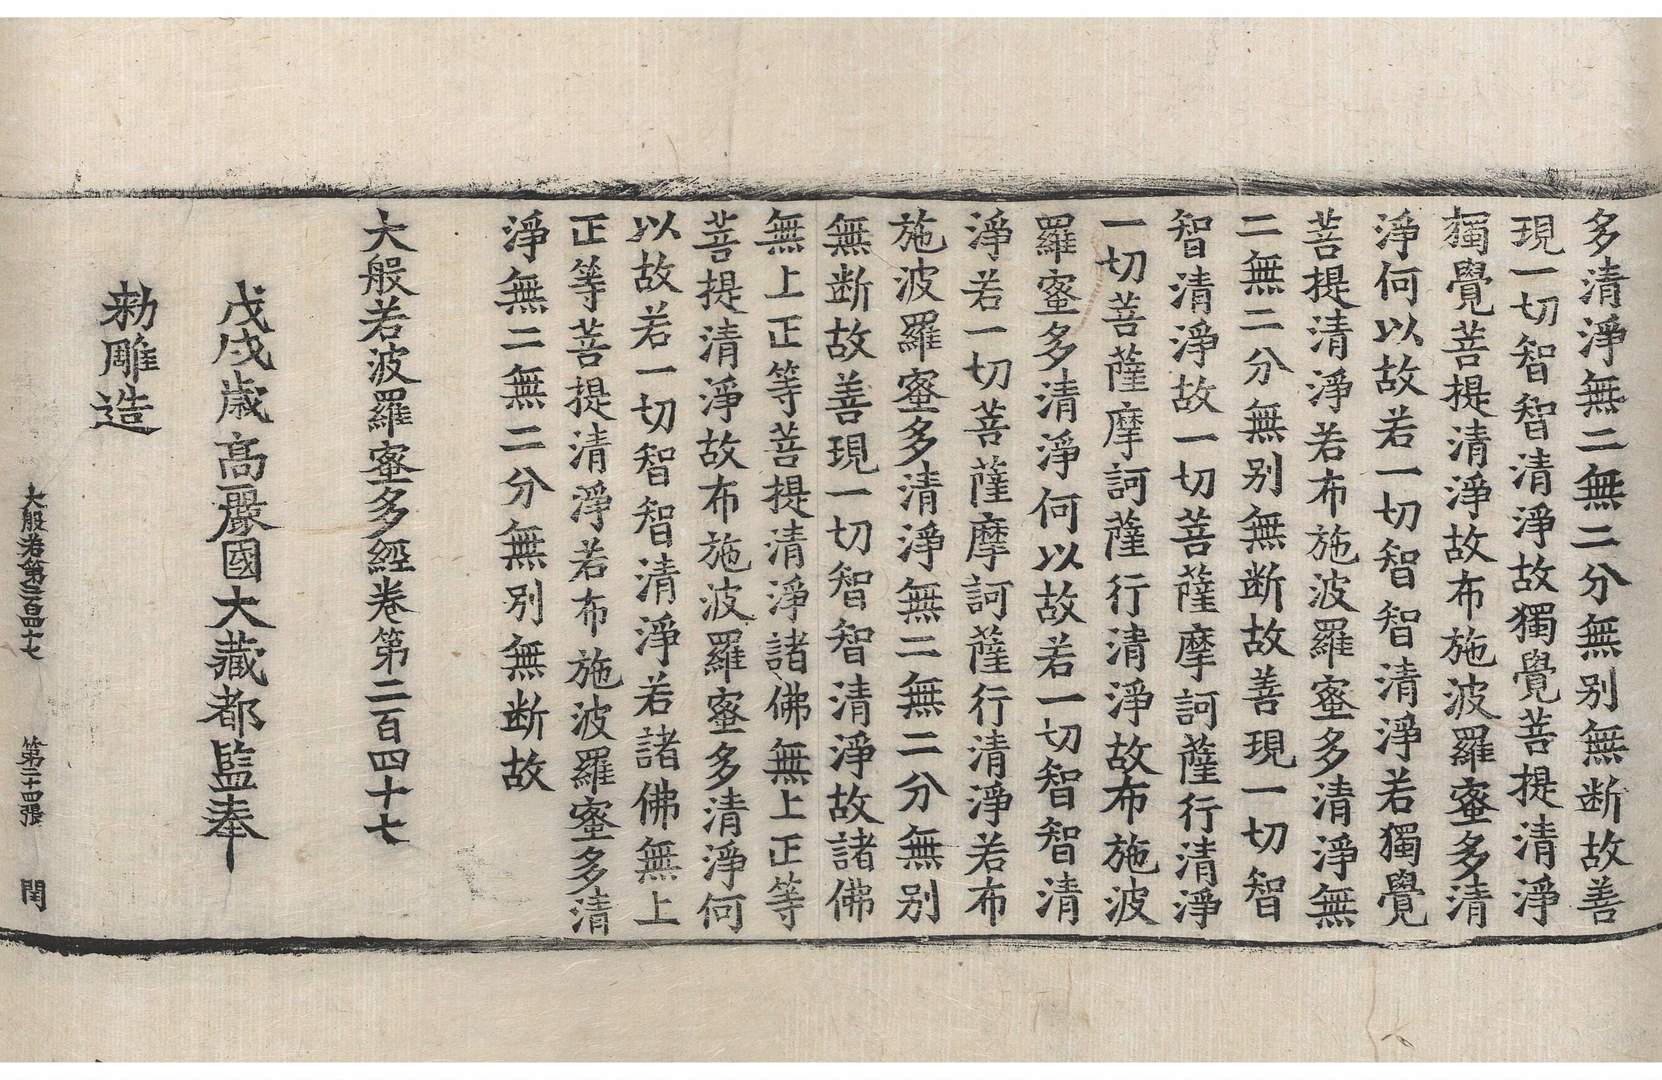 多清淨無二無二分無别無断故善
現一切智智清淨故獨覺菩提清淨
獨覺菩提清淨故布施波羅蜜多清
淨何以故若一切智智清淨若獨覺
菩提清淨若布施波羅蜜多清淨無
二無二分無别無断故善現一切智
智清淨故一切菩薩摩訶薩行清淨
一切菩薩摩訶薩行清淨故布施波
羅蜜多清淨何以故若一切智智清
淨若一切菩薩摩訶薩行清淨若布
施波羅蜜多清淨無二無二分無别
無断故善現一切智智清淨故諸佛
無上正等菩提清淨諸佛無上正等
菩提清淨故布施波羅蜜多清淨何
以故若一切智智清淨若諸佛無上
正等菩提清淨若布施波羅蜜多清
淨無二無二分無别無断故
大般若波羅蜜多經卷第二百四十七
戊戌歲高麗國大藏都監奉
勑雕造
大般若第二百四十七 第二十四張 閏